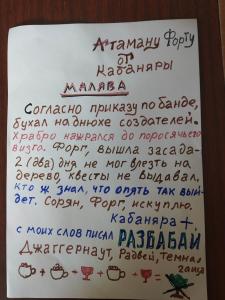 Атаману Форту
от
Кабаняры
МАЛЯВА
Согласно приказу по банде,
бухал на днюхе создателей.
Храбро нажрался до поросячьего
визга. Форт, вышла засада-
2 (два) дня не мог влезть на
дерево, квесты не выдавал.
Кто ж знал, что опять так вый-
дет. Сорян, Форт, искуплю.
Кабаняра+
с моих слов писал РАЗБАБАЙ
Джаггернаут, Радвей, Темная
чаща